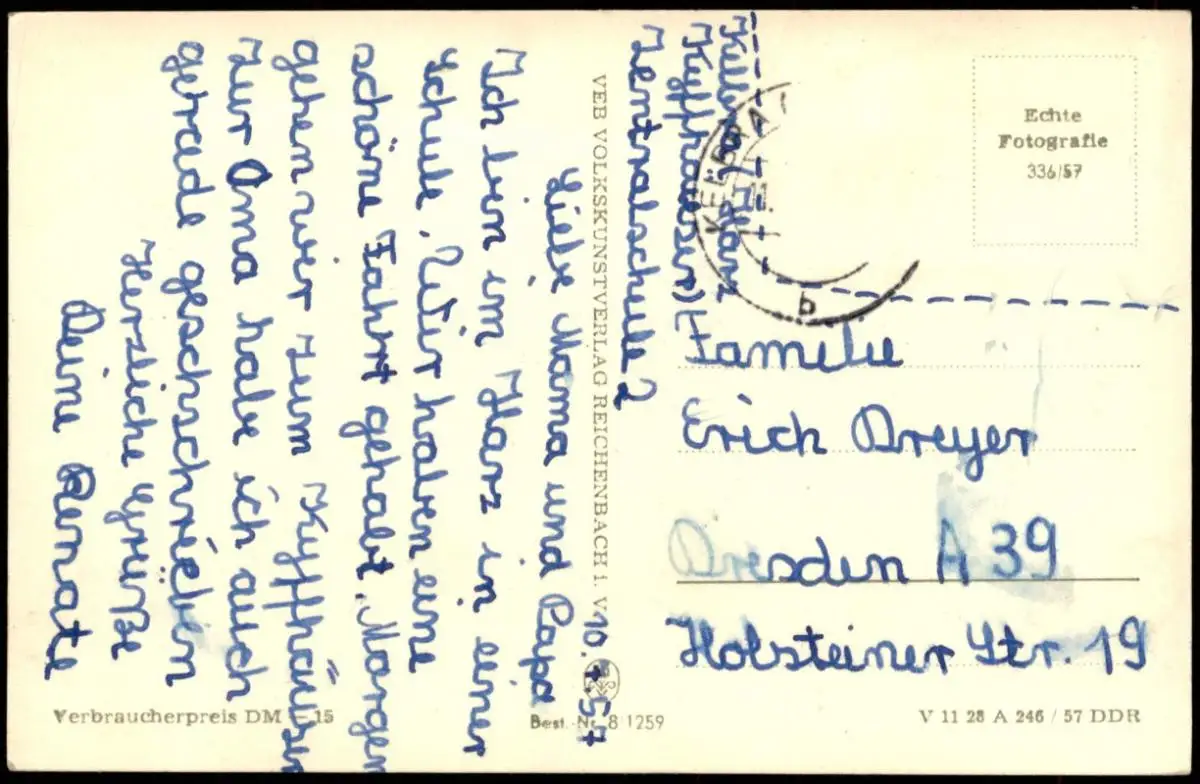 Kelbra/Harz
(Kyffhäuser)
Zentralschule 2
10.7.57
Liebe Mama und Papa
Ich bin im Harz in einer
Schule. Wir haben eine
schöne Fahrt gehabt. Morgen
gehen wir zum Kyffhäuser
Zur Oma habe ich auch
gerade geschschrieben
Herzliche Grüße
Deine Renate
VEB VOLKSKUNSTVERLAG REICHENBACH I. V.
KELBRA
b
Echte
Fotografie
336/57
Familie
Erich Dreyer
Dresden A 39
Holsteiner Str. 19
Verbraucherpreis DM 15
Best.-Nr. 8 1259
V 11 28 A 246 / 57 DDR